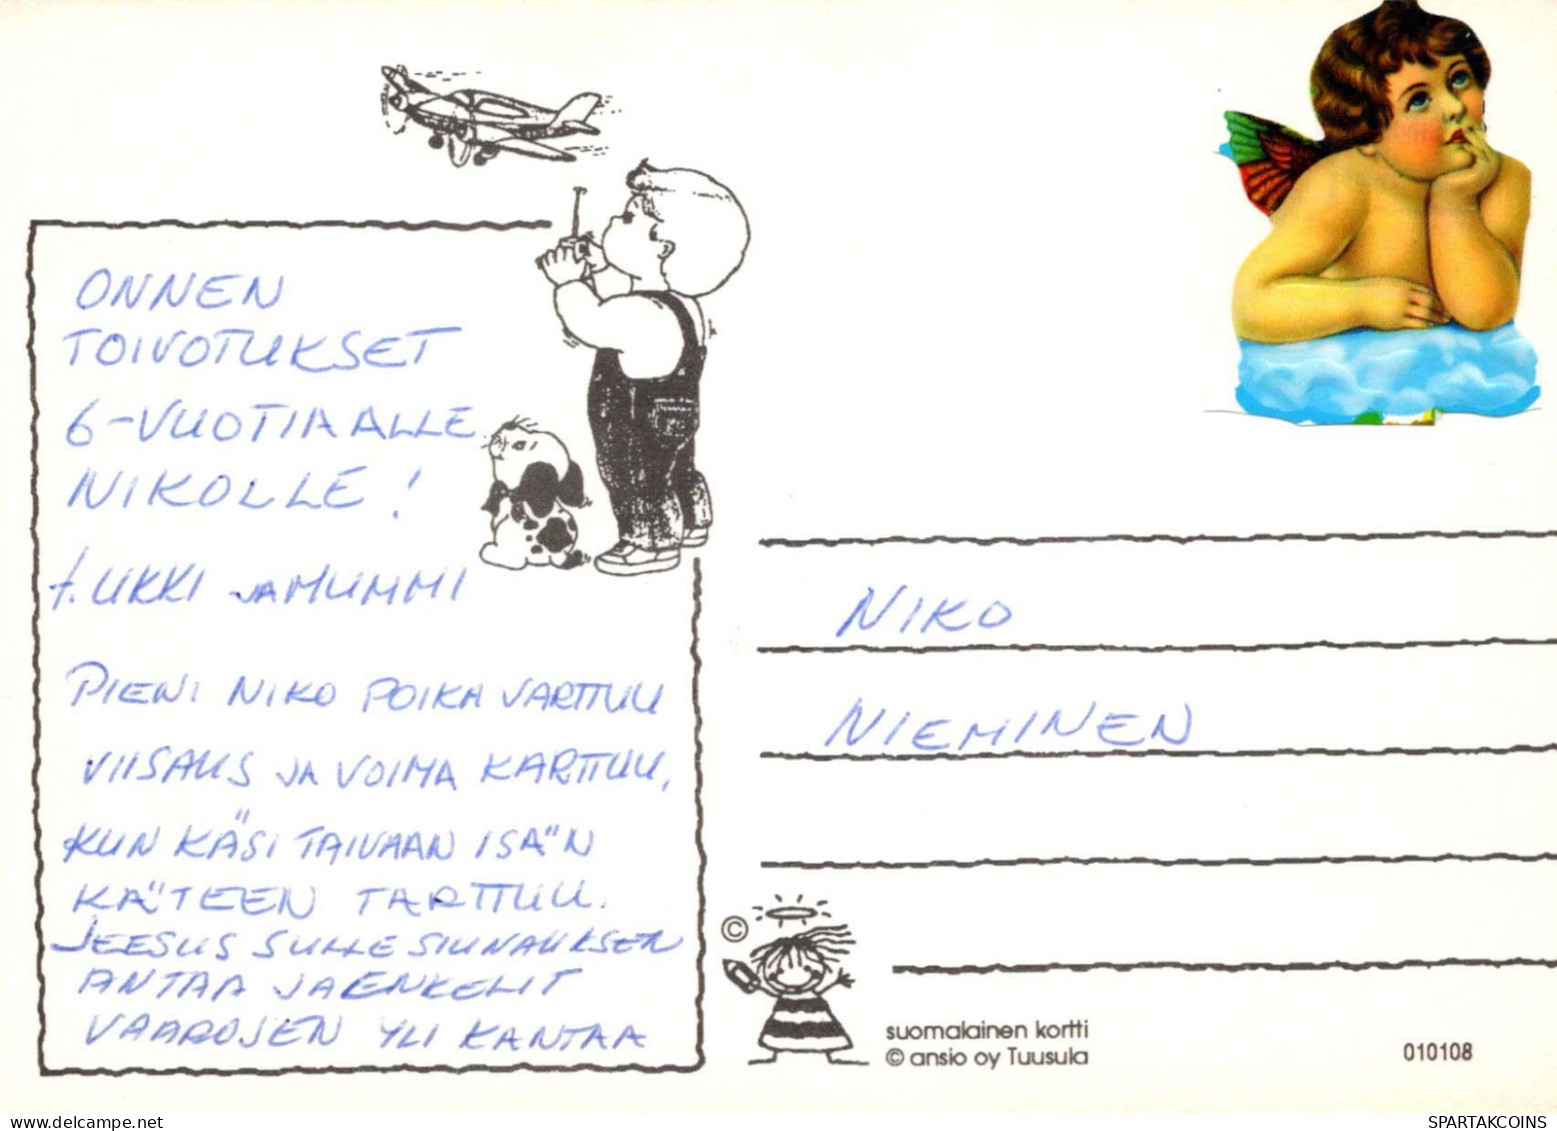 ONNEN
TOIVOTUKSET
6-VUOTIAALLE
NIKOLLE!
t. UKKI JA MUMMI
PIENI NIKO POIKA VARTTUU
VIISAUS JA VOIMA KARTTUU,
KUN KÄSI TAIVAAN ISÄ"N
KÄTEEN TARTTUU.
JEESUS SULLE SIUNAUKSEN
ANTAA JA ENKELIT
VAAROJEN YLI KANTAA
NIKO
NIEMINEN
©
suomalainen kortti
© ansio oy Tuusula
010108
SPARTAKCOINS